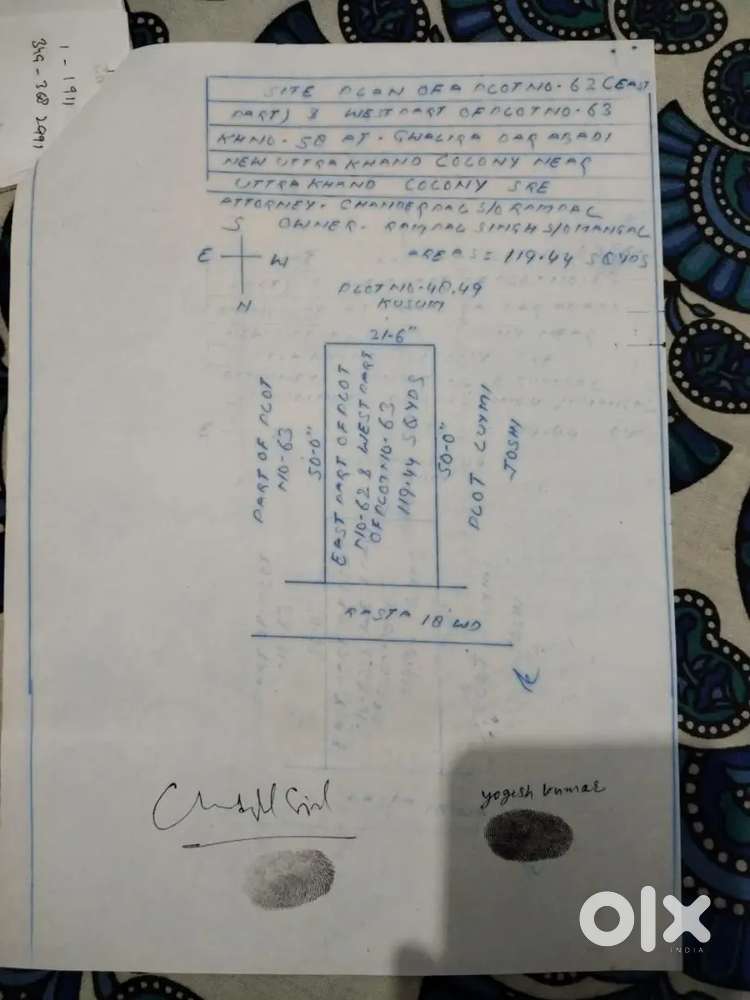 1 - 1911
349 - 368 2991
SITE PLAN OF A PLOT NO. 62 (EAST
PART) & WEST PART OF PLOT NO. 63
KHNO. 58 AT. GWALIRA DAR ABADI
NEW UTTRA KHAND COLONY NEAR
UTTRA KHAND COLONY SRE
ATTORNEY. CHANDERPAL S/O RAMPAL
OWNER. RAMPAL SINGH S/O MANGAL
S
E W
N
AREA S= 119.44 SQYDS
PLOT NO. 48.49
KUSUM
21-6"
PART OF PLOT
NO-63
50-0"
EAST PART OF PLOT
NO-62 & WEST PART
OF PLOT NO. 63
119.44 SQYDS
50-0"
PLOT - LUXMI
JOSHI
RASTA 18 WD
yogesh kumar
olx
INDIA